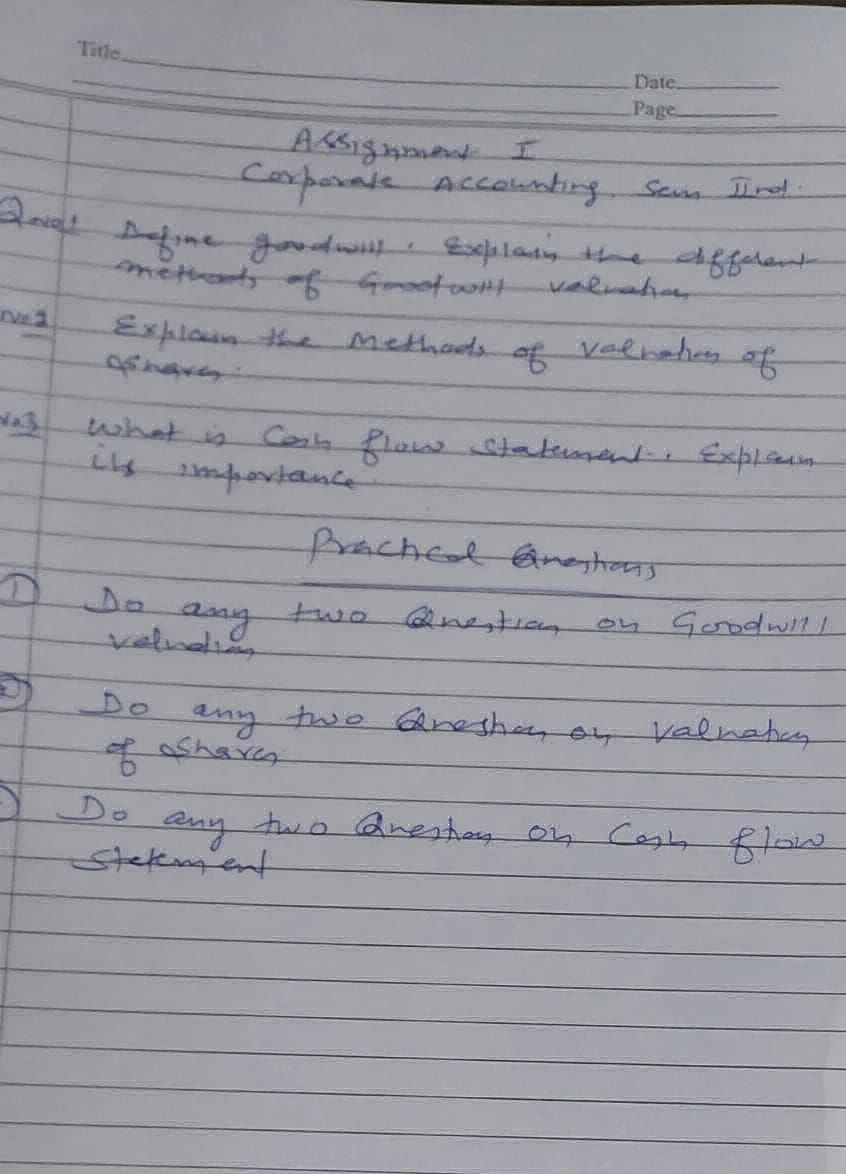 Title
Date
Page
Assignment I
Corporate Accounting Sem IInd.
Q no 1 Define goodwill. Explain the different
methods of Goodwill valuation
No 2 Explain the Methods of Valuation of
Shares.
No 3 What is Cash flow Statement. Explain
its importance
Practical Questions
1 Do any two Question on Goodwill
Valuation
2 Do any two Question on Valuation
of Shares
Do any two Question on Cash flow
Statement